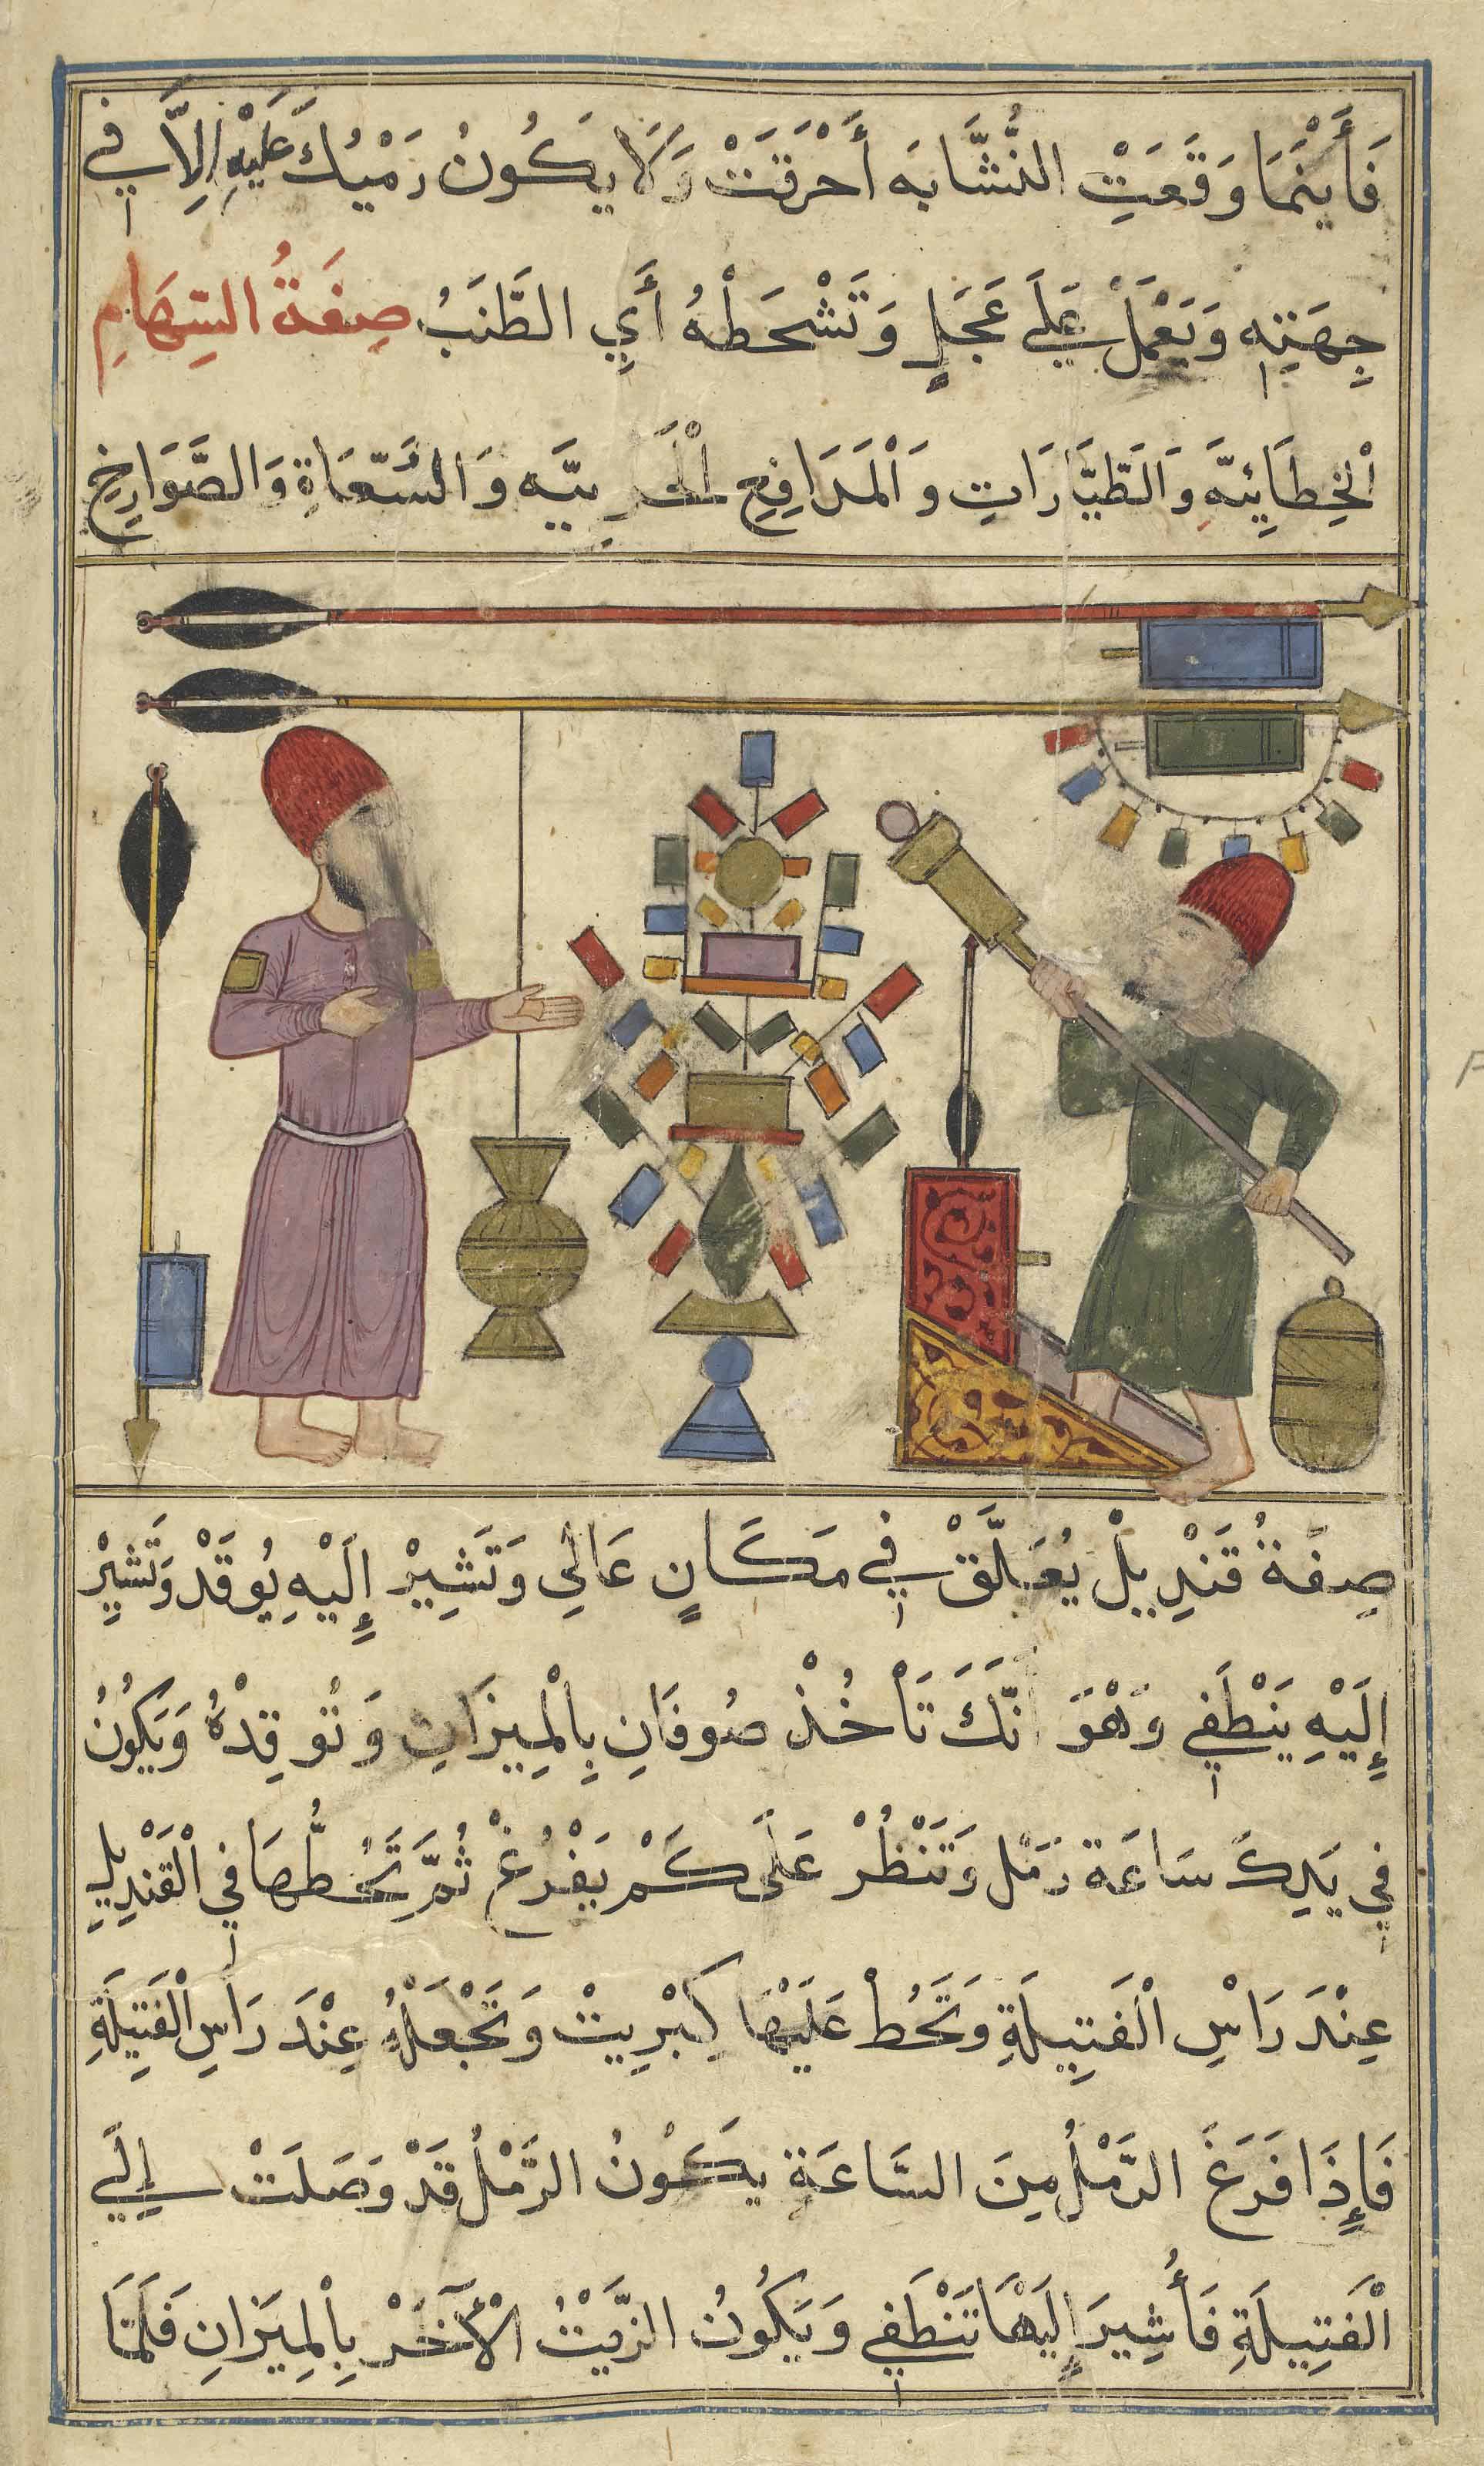 فَأَيْنَمَا وَقَعَتِ النُّشَّابَه أَحْرَقَتْ وَلَا يَكُونُ رَمْيُكَ عَلَيْهِ إِلَّا فِي
جِهَتِهِ وَتَعْمَلْ عَلَى عَجَلٍ وَتَشْحَطْهُ أَيِ الطَّنَبُ صِفَةُ السِّهَامِ
الْخِطَايِيَّه وَالطَّيَّارَاتِ وَالْمَدَافِعِ وَالسَّعَاةِ وَالصَّوَارِيخِ
صِفَةُ قَنْدِيلْ يُعَلَّقْ فِي مَكَانٍ عَالِي وَتَشِيرْ إِلَيْهِ يُوقَدْ وَتَشِيرْ
إِلَيْهِ يَنْطَفِي وَهْوَ انَّكَ تَأْخُذْ صُوفَانِ بِالْمِيزَانِ وَتُوقِدْهُ وَيَكُونُ
فِي يَدِكَ سَاعَة رَمْل وَتَنْظُرْ عَلَى كَمْ يَفْرُغْ ثُمَّ تَحُطُّهَا فِي الْقَنْدِيلِ
عِنْدَ رَاسْ الْفَتِيلَةِ وَتَحُطْ عَلَيْهَا كِبْرِيتْ وَتَجْعَلْهُ عِنْدَ رَاسِ الْفَتِيلَةِ
فَإِذَا فَرَغَ الرَّمْلُ مِنَ السَّاعَة يَكُونُ الرَّمْلُ قَدْ وَصَلَتْ إِلَى
الْفَتِيلَةِ فَأُشِيرَ إِلَيْهَا تَنْطَفِي وَيَكُونُ الزَّيْتُ الْآخَرْ بِالْمِيزَانِ فَلَمَّا